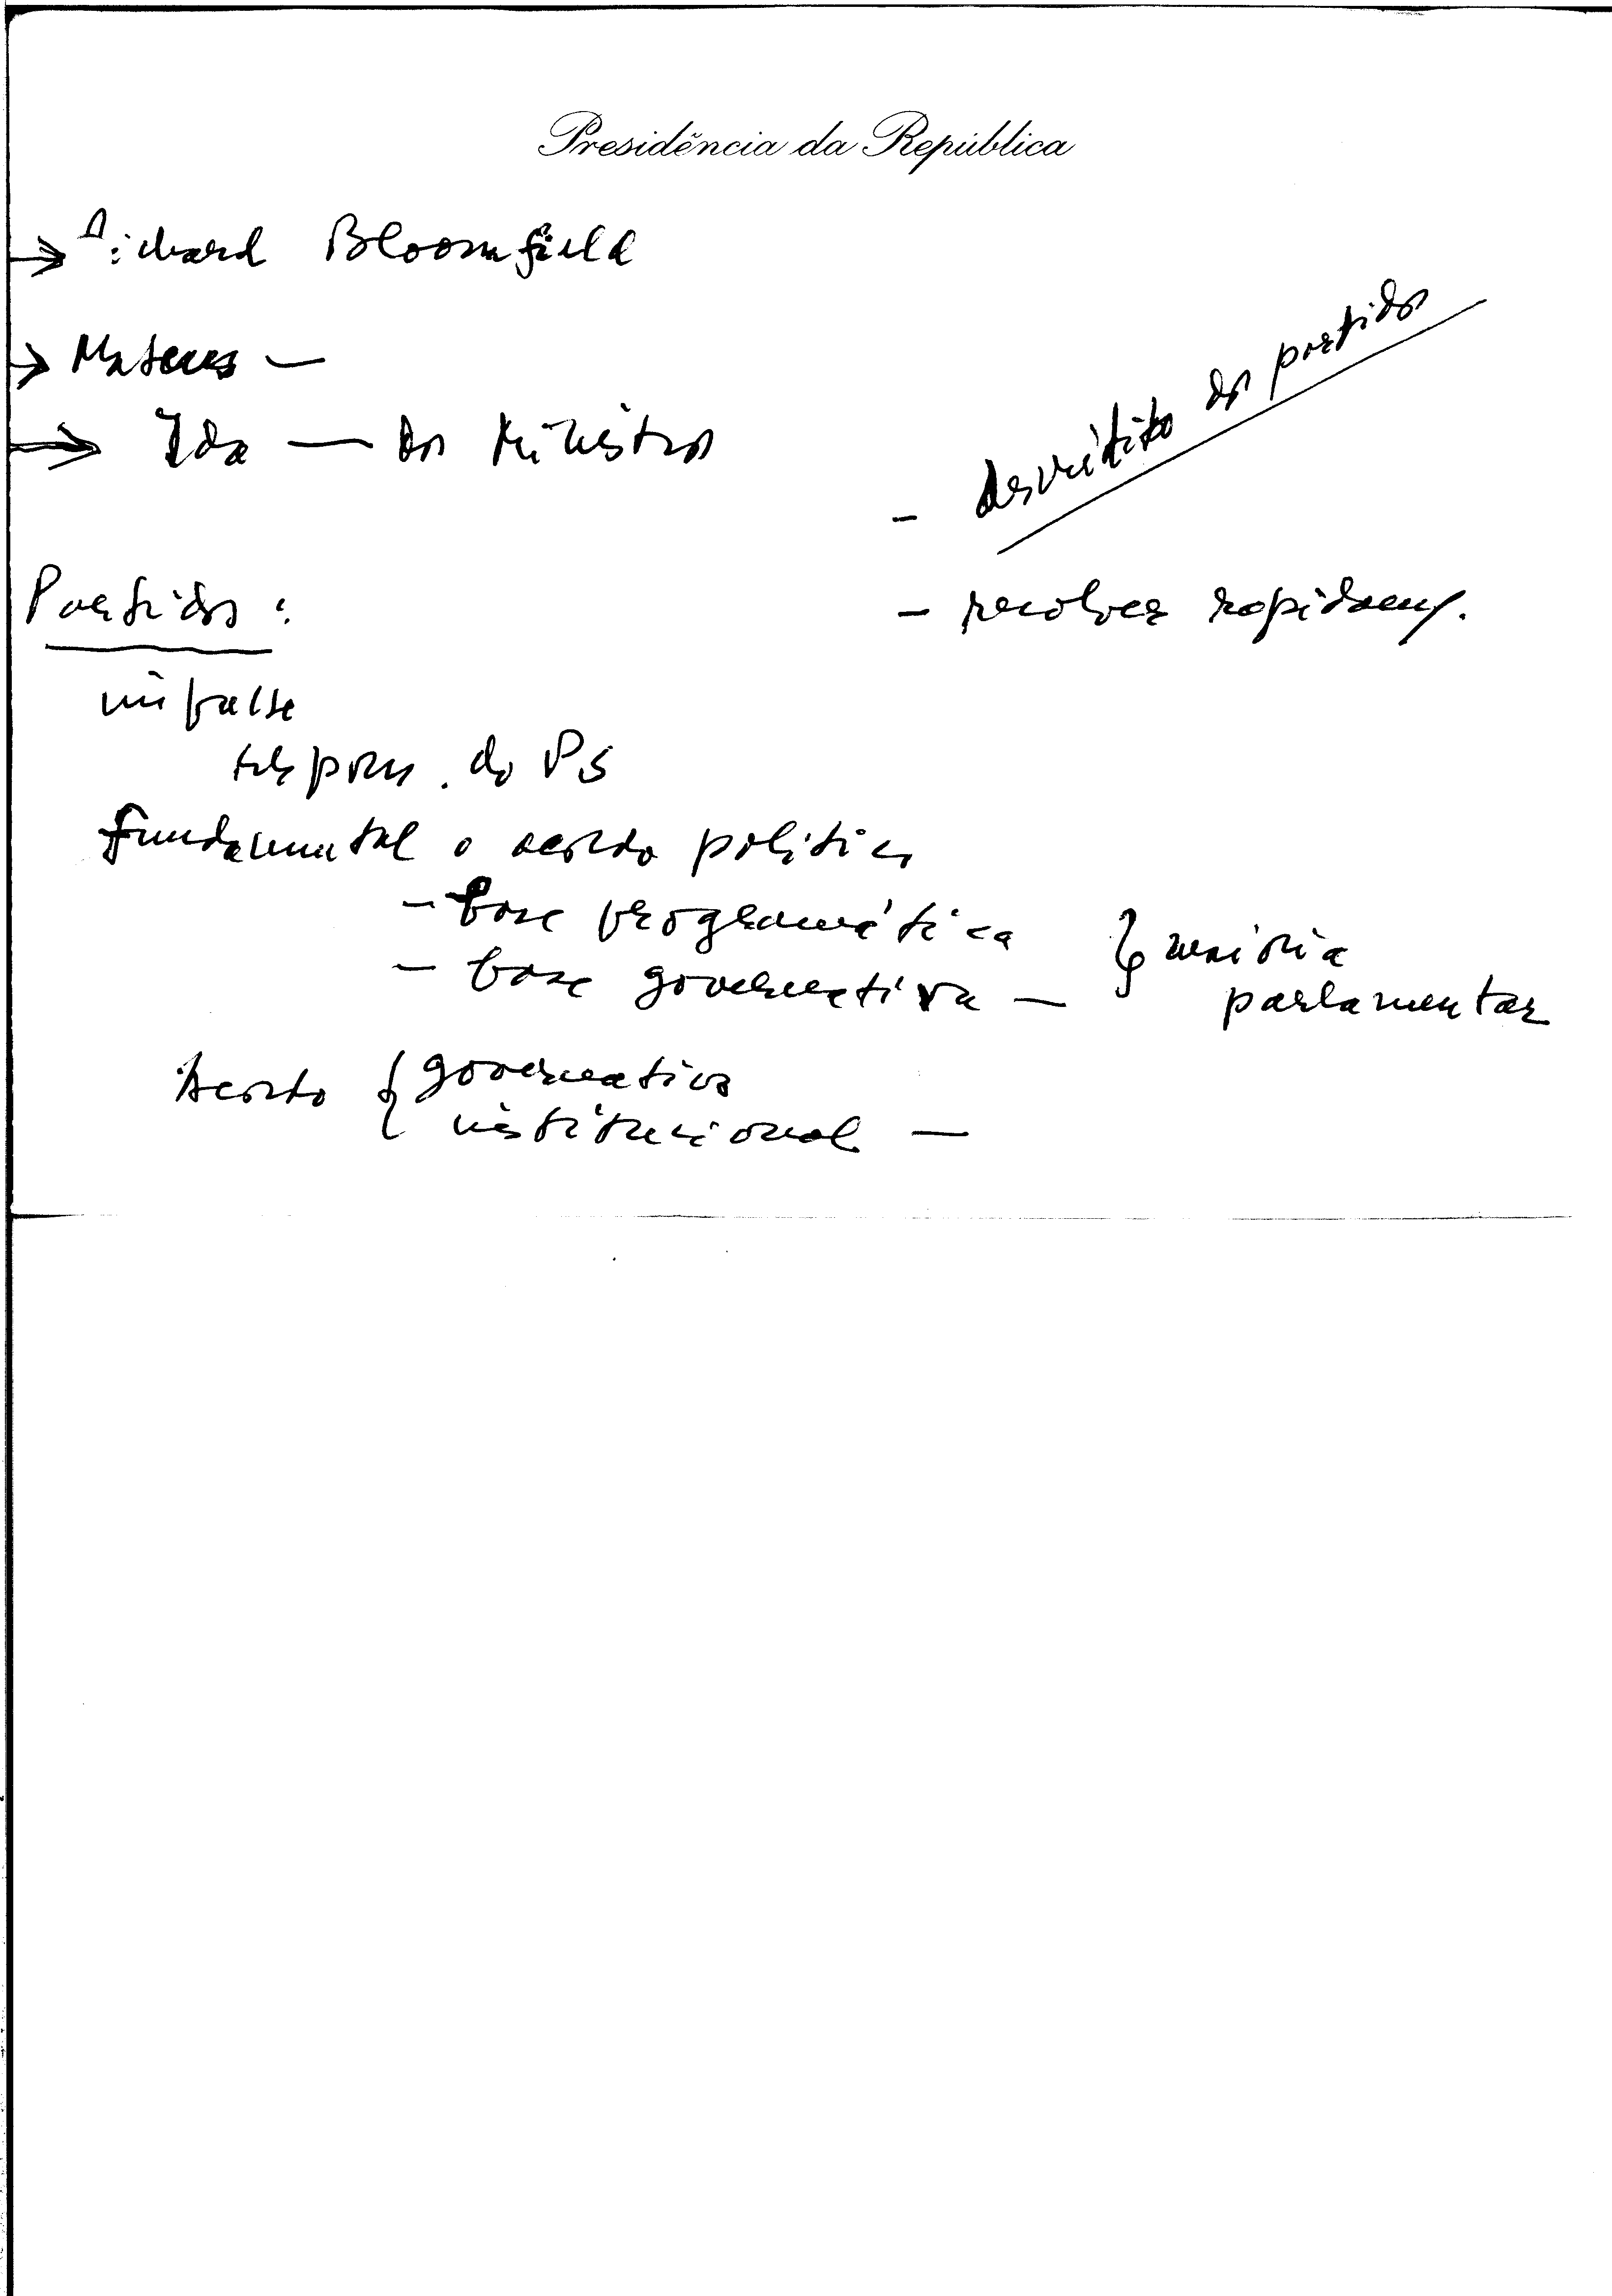 Presidência da República
→ Richard Bloomfield
→ Mateus —
→ Ida — dos Ministros
- descrédito dos partidos
Partidos:
- resolver rapidam/.
impasse
respons. do PS
Fundamental o acordo político
- base programática
- base governativa — } maioria
parlamentar
Acordo { governativo
institucional —